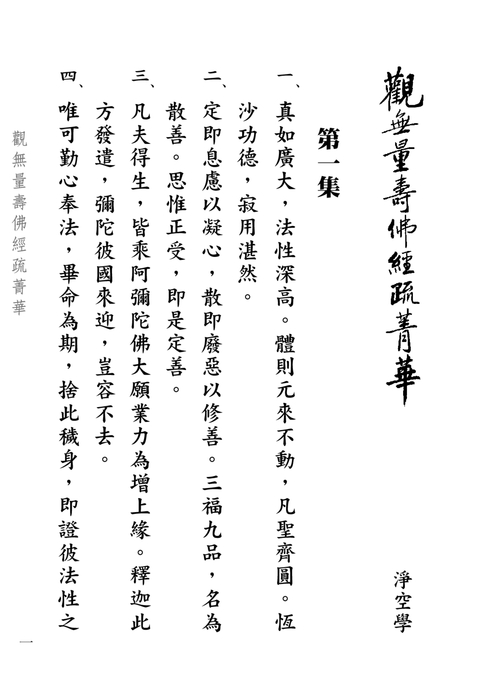 觀無量壽佛經疏菁華
淨空學
第一集
一、真如廣大，法性深高。體則元來不動，凡聖齊圓。恆
沙功德，寂用湛然。
二、定即息慮以凝心，散即廢惡以修善。三福九品，名為
散善。思惟正受，即是定善。
三、凡夫得生，皆乘阿彌陀佛大願業力為增上緣。釋迦此
方發遣，彌陀彼國來迎，豈容不去。
四、唯可勤心奉法，畢命為期，捨此穢身，即證彼法性之
觀無量壽佛經疏菁華
一